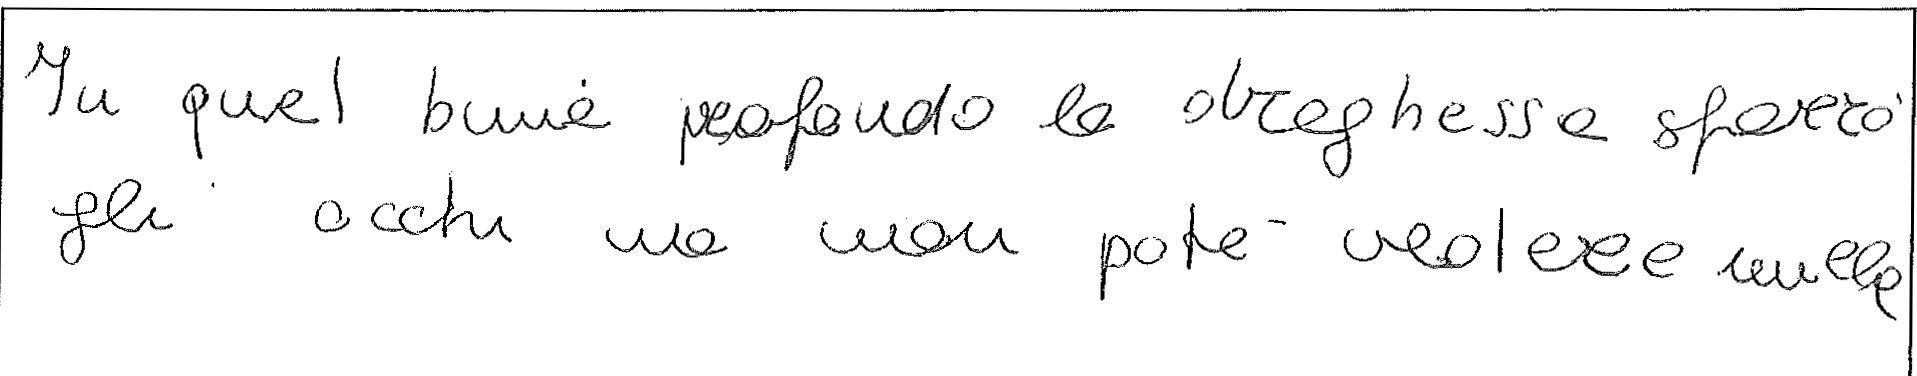 In quel buio profondo la draghessa sbarrò
gli occhi ma non poté vedere nulla